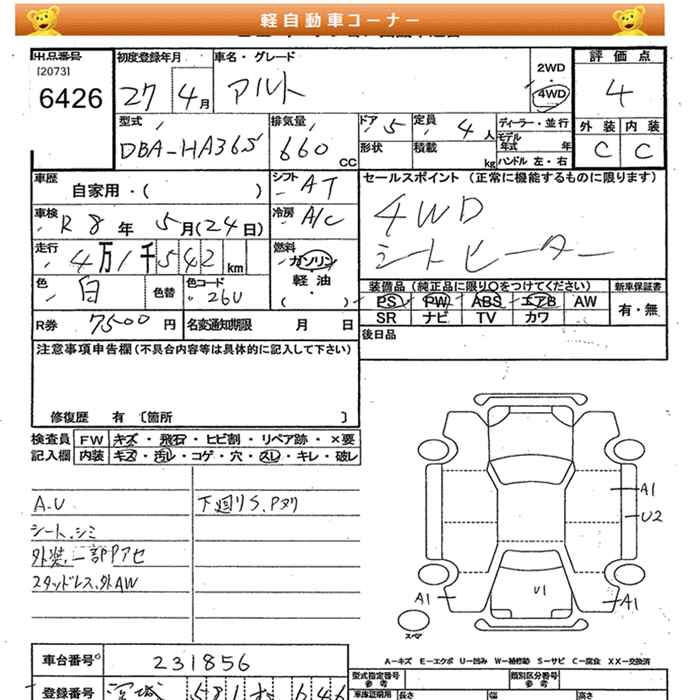 軽自動車コーナー
出品番号
[2073]
6426
初度登録年月
27 4月
車名・グレード
アルト
2WD
4WD
評価点
4
外装 内装
C C
型式
DBA-HA36S
排気量
660 CC
ドア 5
形状
定員 4人
積載 kg
ディーラー・並行
モデル年式 年
ハンドル 左・右
車歴
自家用・( )
シフト AT
冷房 A/C
セールスポイント (正常に機能するものに限ります)
4WD
シートヒーター
車検
R8年 5月(24日)
走行
4万1千542km
燃料
ガソリン
・
軽油
( )
色
白
色替
色コード
26U
R券 7500円
名変通知期限 月 日
装備品 (純正品に限り○をつけてください)
PS PW ABS エアB AW
SR ナビ TV カワ
新車保証書
有・無
後日品
注意事項申告欄 (不具合内容等は具体的に記入して下さい)
修復歴 有〔箇所 〕
検査員 FW キズ・飛石・ヒビ割・リペア跡・×要
記入欄 内装 キズ・汚レ・コゲ・穴・スレ・キレ・破レ
A.U
シート、シミ
外装、一部アセ
スタッドレス、外AW
下廻りS、Pヌリ
A1
U2
U1
A1
A1
スペア
車台番号 231856
登録番号 宮城 581
A-キズ E-エクボ U-凹み W-補修跡 S-サビ C-腐食 XX-交換済
型式指定番号
参考
類別区分番号
参考
長さ
幅
高さ